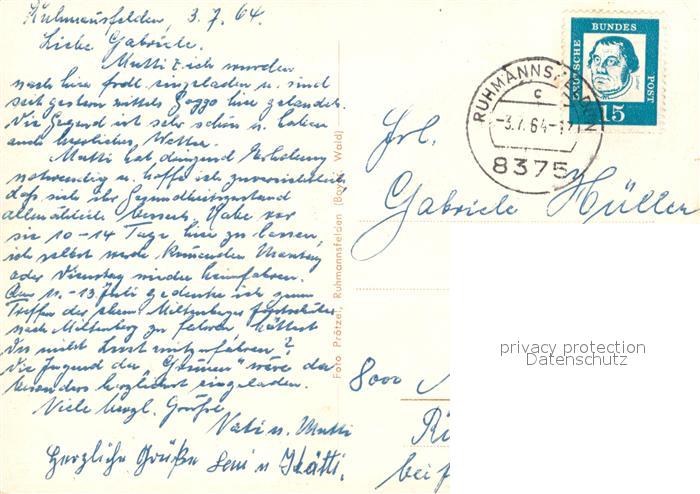 Ruhmannsfelden, 3.7.64.
Liebe Gabriele.
Mutti & ich wurden
nach hier frdl. eingeladen u. sind
seit gestern mittels Goggo hier gelandet.
Die Gegend ist sehr schön u. haben
auch herrliches Wetter.
Mutti hat dringend Erholung
notwendig u. hoffe ich zuversichtlich
daß sich ihr Gesundheitszustand
allmählich bessert. Habe vor
sie 10-14 Tage hier zu lassen,
ich selbst werde kommenden Montag
oder Dienstag wieder heimfahren.
11.-13. Juli gedenke ich zum
Treffen der ehem. Miltenberger
nach Miltenberg zu fahren. Hättest
Du nicht Lust mitzufahren?
Die Jugend der "Grünen" wäre da
besonders herzlichst eingeladen.
Viele herzl. Grüße
Vati u. Mutti
Herzliche Grüße Leni u.
Foto Prötzel, Ruhmannsfelden (Bayr. Wald)
DEUTSCHE BUNDESPOST
15
RUHMANNSFELDEN
c
-3.7.64-17
8375
Frl.
Gabriele Müller
8000
privacy protection
Datenschutz